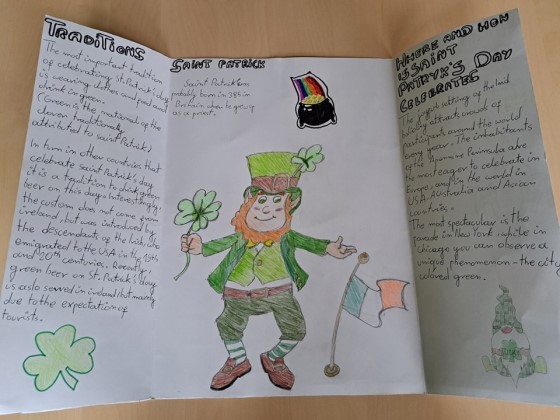 TRADITIONS
The most important tradition
of celebrating St. Patrick's day
is wearing clothes and
drink in green.
(Green is the national of the
clover traditionally
attributed to saint Patrick)
In turn in other countries that
celebrate saint Patrick's day
it is a tradition to drink green
beer on this day. Interestingly,
the custom does not come from
ireland, but was introduced by
the descendants of the Irish who
emigrated to the USA in the 19th
and 20th centuries. Recently,
green beer on St. Patrick's day
is aslo served in ireland but mainly
due to the expectation of
tourists.
SAINT PATRICK
Saint Patrick was
probably born in 385 in
Britain when he grew
as a priest.
WHERE AND HOW
IS SAINT
PATRYK'S DAY
CELEBRATES
The joyful setting of the Irish
holiday attracts crowds of
participants around the world
every year. The inhabitants
of the Peninsula are
the most eager to celebrate in
Europe, and in the world in
USA, Australia and
countries.
The most spectacular is the
parade in New York, while in
chicago you can observe a
unique phenomenon - the city
colored green.